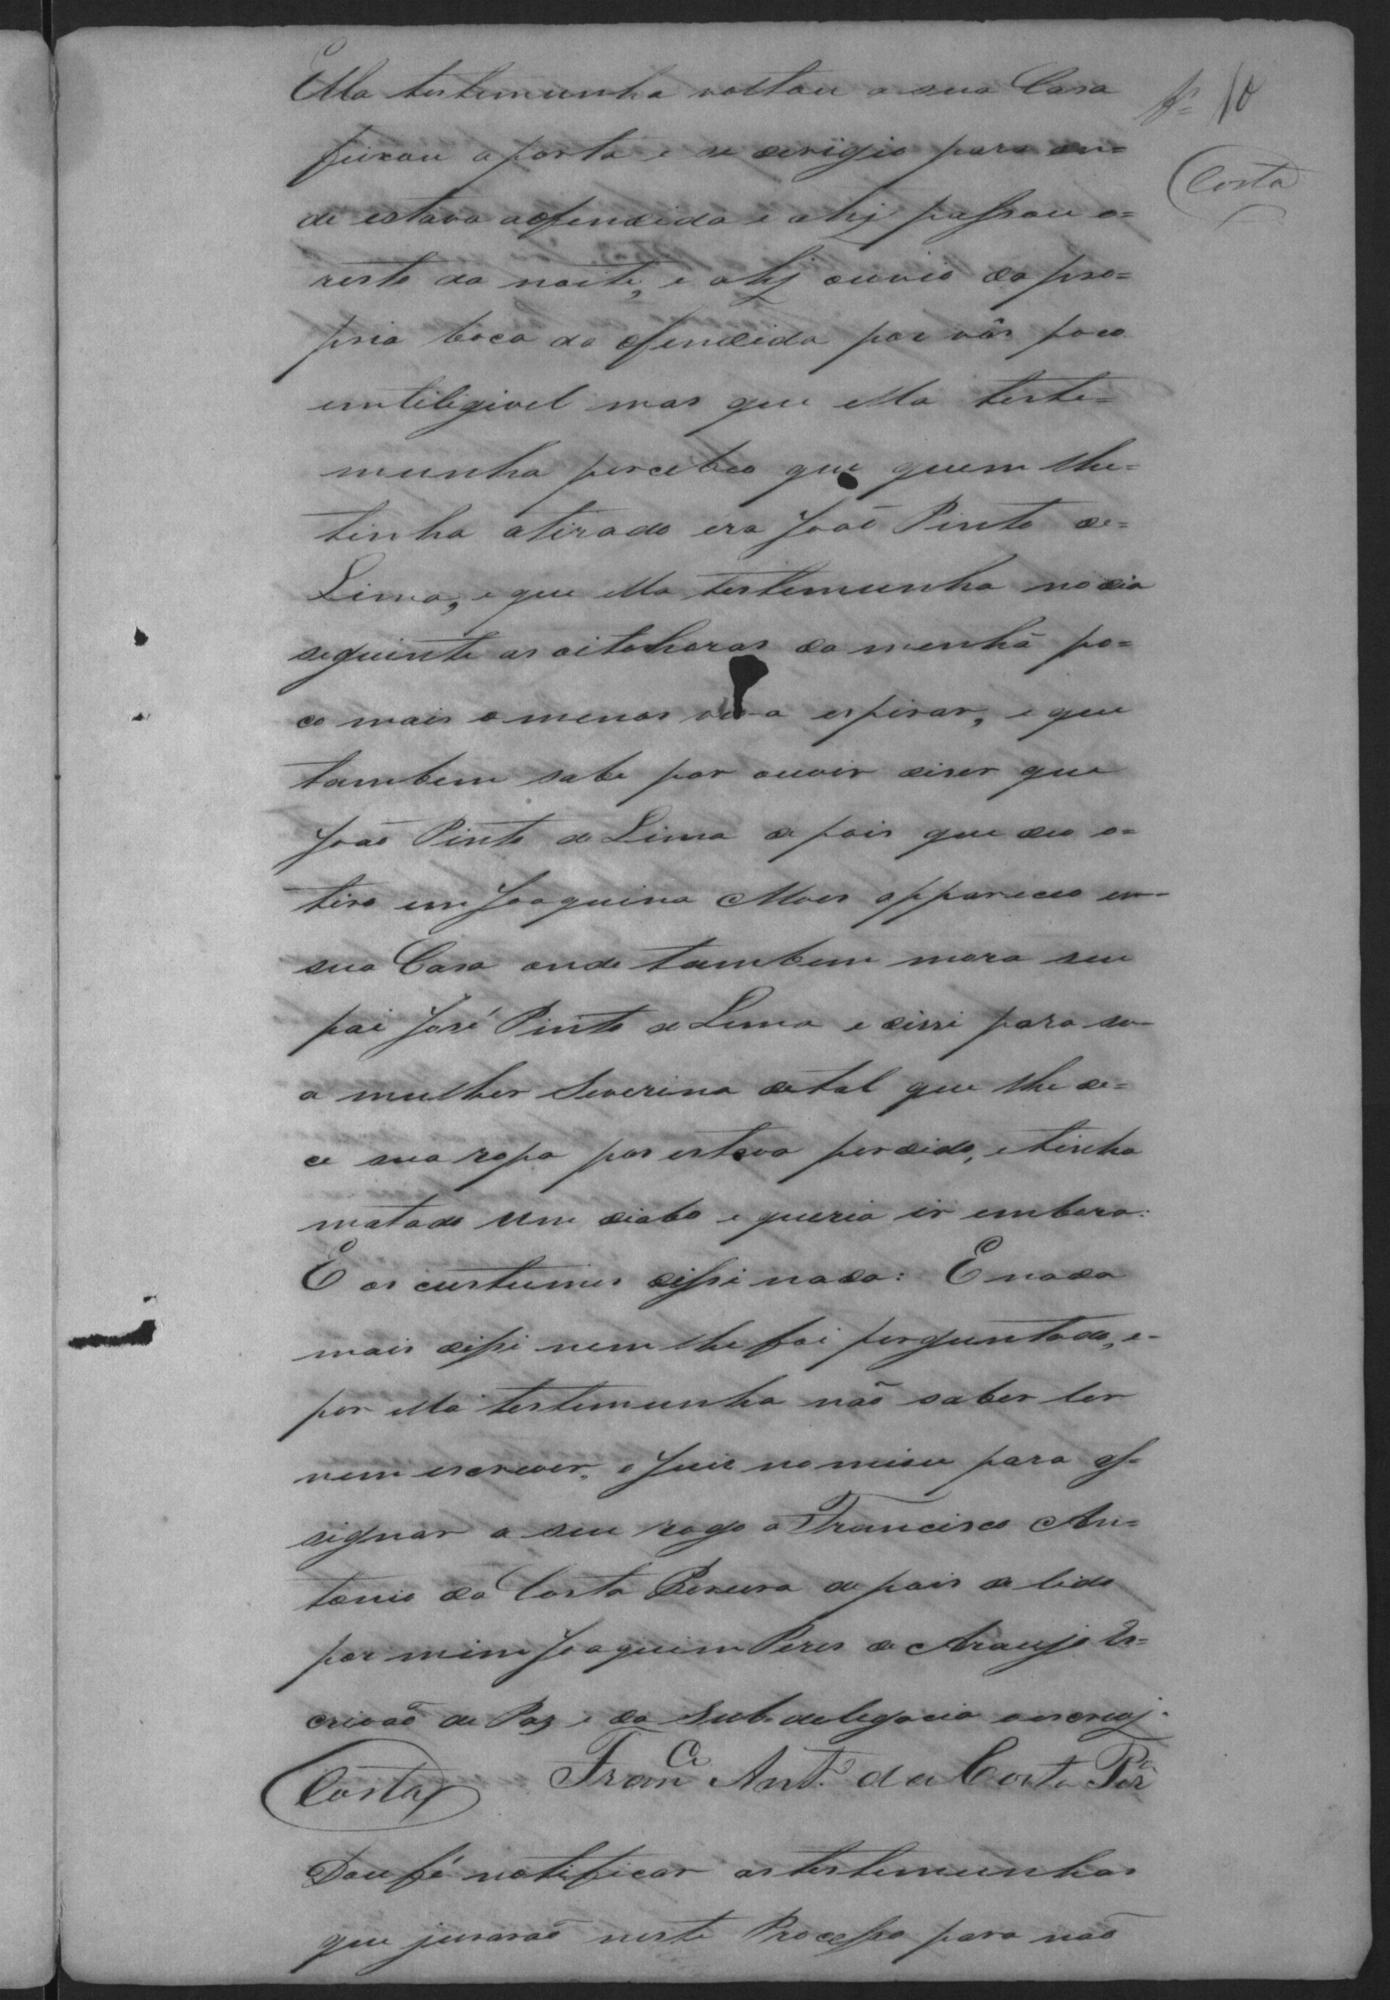 fs 10
Costa
Ella testemunha voltou a sua Casa
feixou a porta e se derigio para on=
de estava a ofendida e ahy passou o=
resto da noite, e ahy ouvio da pro=
pria boca da ofendida por vôs poco
inteligivel mas que ella teste=
munha percebeo que quem lhe=
tinha atirado era João Pinto de=
Lima, e que ella testemunha no dia
seguinte as oito horas da menhã po=
co mais o menos vio a espirar, e que
tambem sabe por ouvir diser que
João Pinto de Lima de pois que deo o=
tiro em Joaquina Alves appareceo em
sua Casa onde tambem mora seu
pai José Pinto de Lima e dissi para su-
a mulher Severina de tal que lhe de=
ce sua ropa por estava perdido, e tinha
matado um diabo e queria ir embora:
E os custumes dissi nada: E nada
mais dissi nem lhe foi perguntado, e-
por ella testemunha não saber ler
nem escrever, o Juis nomiou para as-
signar a seu rogo a Francisco An=
tonio da Costa Pereira de pois de lido
por mim Joaquim Peres de Araujo Es=
crivão de Paz e da Subdelegacia o escrevj.
Costa Fran.co Ant.o da Costa Per.a
Dou fé notificar as testemunhas
que jurarão neste Processo para não